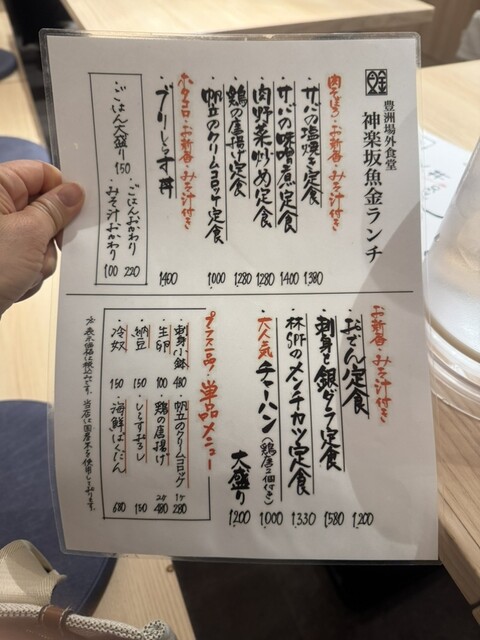 豊洲場外食堂
神楽坂魚金ランチ
肉そぼろ・お新香・みそ汁付き
・サバの塩焼き定食 1380
・サバの味噌煮定食 1400
・肉野菜炒め定食 1280
・鶏の唐揚げ定食 1280
・帆立のクリームコロッケ定食 1000
・お新香・みそ汁付き
・ブリしらす丼 1400
・ごはん大盛り 150
・ごはんおかわり 220
・みそ汁おかわり 100
お新香・みそ汁付き
おでん定食 1200
刺身と銀ダラ定食 1580
・林SPFのメンチカツ定食 1330
大人気 チャーハン(鶏唐二個付き) 1000
大盛り 1200
プラス一品! 単品メニュー
・刺身小鉢 480
・生卵 100
・納豆 150
・冷奴 150
・帆立のクリームコロッケ 1ケ 280
・鶏の唐揚げ 2ケ 480
・しらすおろし 150
・海鮮ばくだん 680
※表示価格は税込みです。 当店は国産米を使用しております。